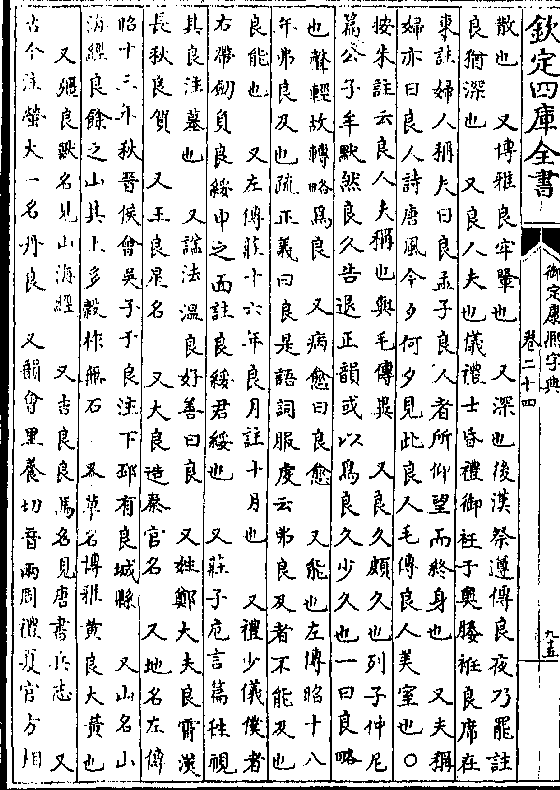 欽定四庫全書
御定康熙字典
卷二十四
九五
散也　又博雅良牢鞏也　又深也後漢祭遵傳良夜乃罷註
良猶深也　又良人夫也儀禮士昏禮御衽于奧媵衽良席在
東註婦人稱夫曰良孟子良人者所仰望而終身也　又夫稱
婦亦曰良人詩唐風今夕何夕見此良人毛傳良人美室也○
按朱註云良人夫稱也與毛傳異　又良久頗久也列子仲尼
篇公子牟默然良久告退正韻或以爲良久少久也一曰良略
也聲輕故轉略爲良　又病愈曰良愈　又能也左傳昭十八
年弗良及也疏正義曰良是語詞服虔云弗良及者不能及也
良能也　又左傳莊十六年良月註十月也　又禮少儀僕者
右帶劒負良綏申之面註良綏君綏也　又莊子庖言篇秪視
其良注墓也　又諡法溫良好善曰良　又姓鄭大夫良霄漢
長秋良賀　又王良泉名　又大良造秦官名　又地名左傳
昭十三年秋晉侯會吳子于良注下邳有良城縣　又山名山
海經良餘之山其上多穀柞無石　又草名博雅黄良大黄也
又彊良獸名見山海經　又吉良良馬名見唐書兵志　又
古今注螢火一名丹良　又韻會里養切音兩周禮夏官方相